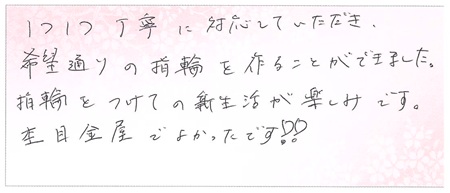 1つ1つ丁寧に対応していただき、
希望通りの指輪を作ることができました。
指輪をつけての新生活が楽しみです。
杢目金屋でよかったです!!